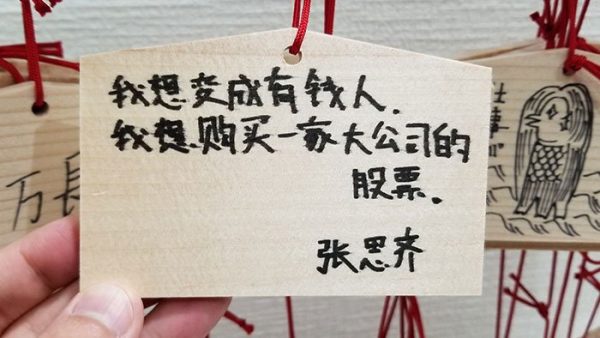 我想变成有钱人.
我想购买一家大公司的
股票.
张思齐